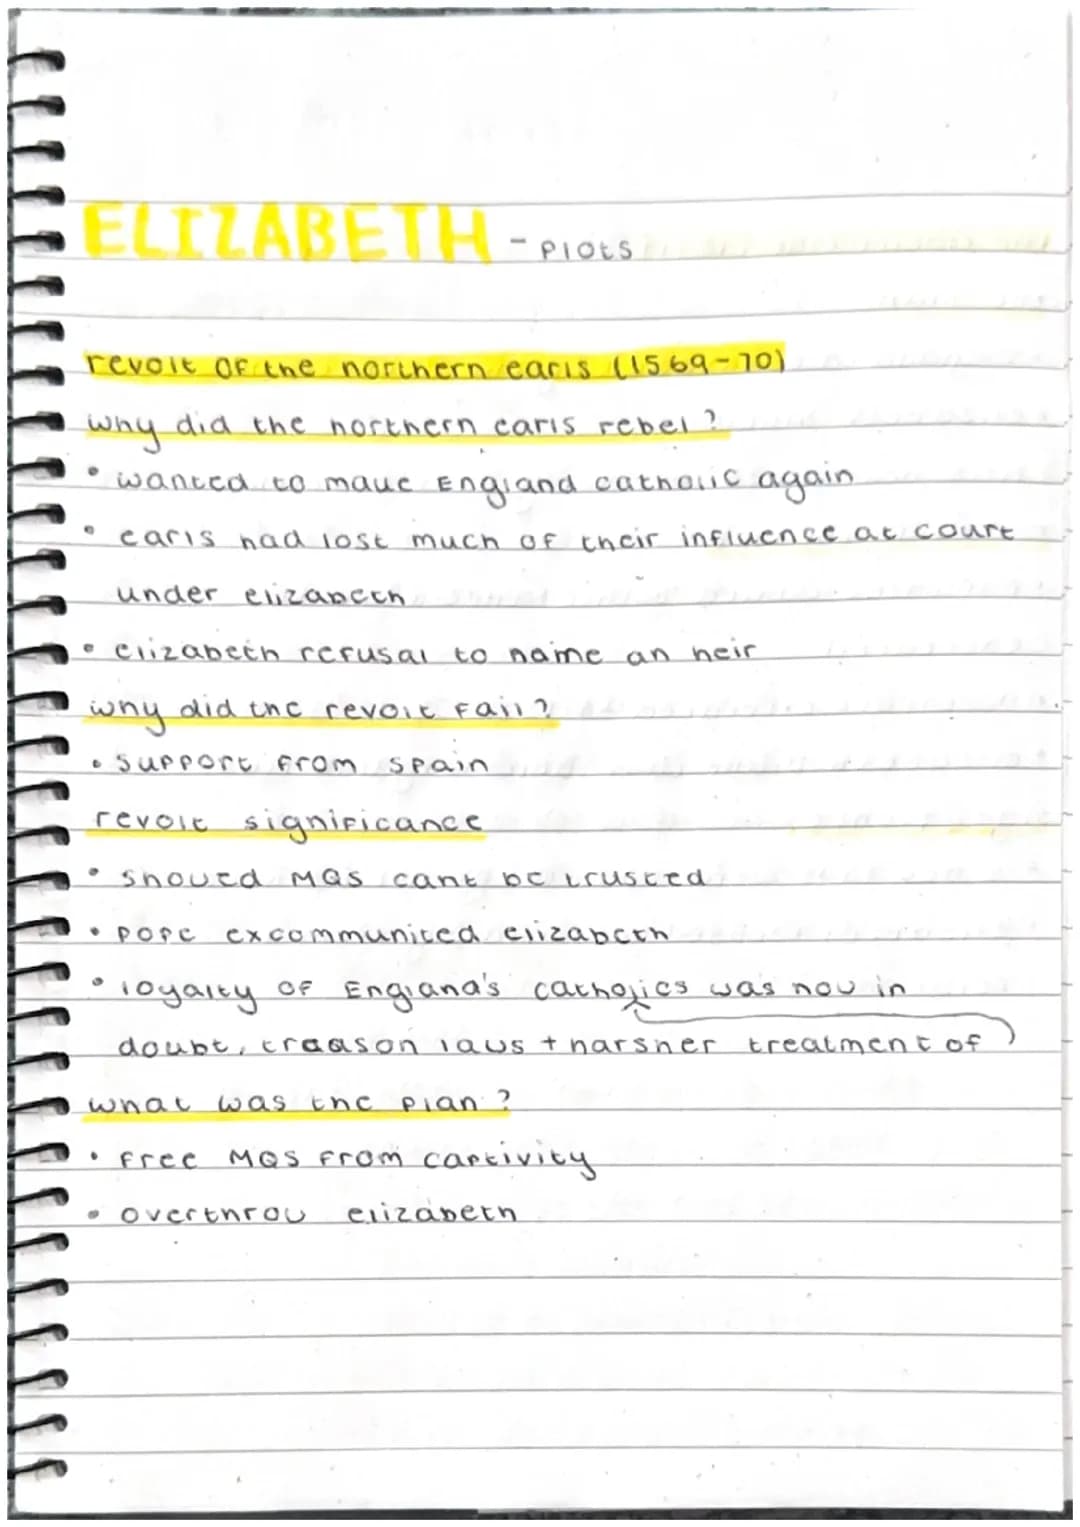 ELIZABETH - Plots
revolt of the northern earls (1569-70)
why did the northern earls rebel?
• wanted to make England catholic again
• earls had lost much of their influence at court
under elizabeth
• elizabeth refusal to name an heir
why did the revolt fail?
• support from spain
revolt significance
• showed MQS cant be trusted
• pope excommunited elizabeth
• loyalty of England's catholics was now in
doubt, treason laws + harsher treatment of
what was the plan?
• free MQS from captivity
• overthrow elizabeth